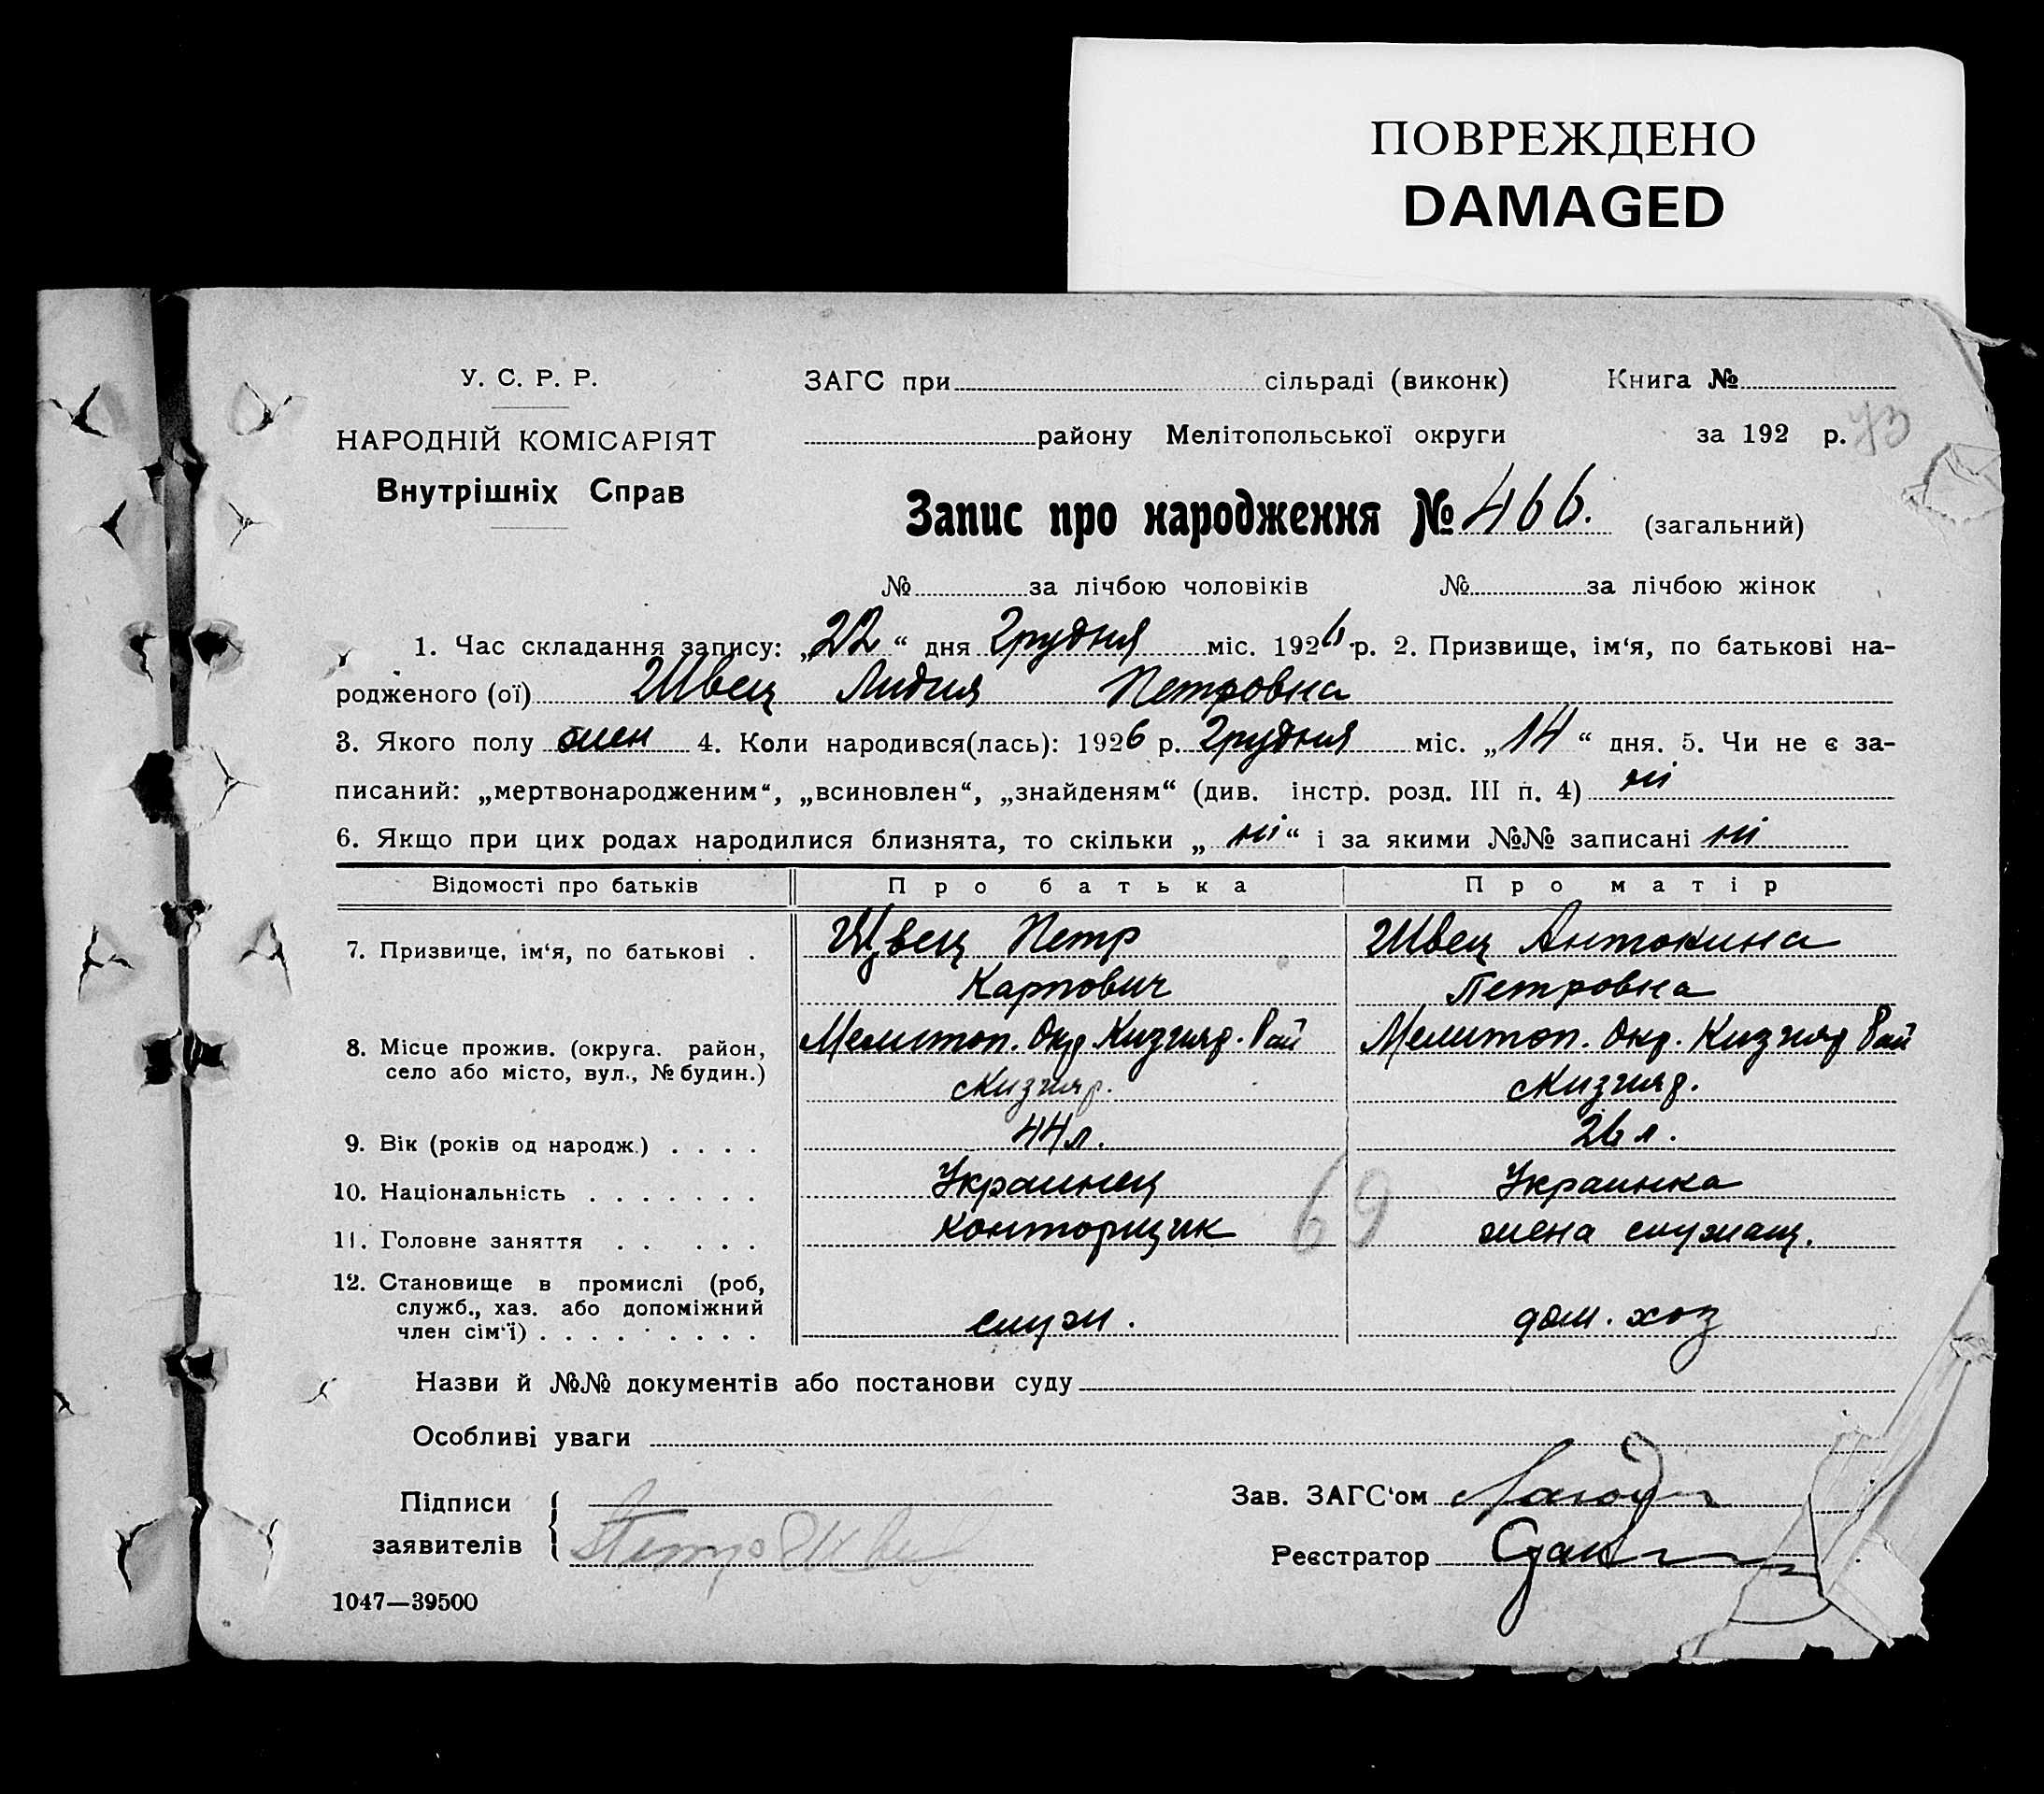 ПОВРЕЖДЕНО
DAMAGED
У. С. Р. Р.
НАРОДНІЙ КОМІСАРІЯТ
Внутрішніх Справ
ЗАГС при сільраді (виконк) Книга №
району Мелітопольської округи за 192 р. 73
Запис про народження № 466. (загальний)
№ за лічбою чоловіків № за лічбою жінок
1. Час складання запису: „22“ дня Грудня міс. 1926 р. 2. Призвище, ім‘я, по батькові на-
родженого (ої) Швец Лидия Петровна
3. Якого полу жен 4. Коли народився(лась): 1926 р. Грудня міс. „14“ дня. 5. Чи не є за-
писаний: „мертвонародженим“, „всиновлен“, „знайденям“ (див. інстр. розд. III п. 4) ні
6. Якщо при цих родах народилися близнята, то скільки „ні“ і за якими №№ записані ні
Відомості про батьків Про батька Про матір
7. Призвище, ім‘я, по батькові . Швец Петр Швец Антонина
Карпович Петровна
8. Місце прожив. (округа. район, Мелитоп. Окр. Кизияр. Рай Мелитоп. Окр. Кизияр Рай
село або місто, вул., № будин.) с Кизияр. с Кизияр.
9. Вік (років од народж.) . . . . 44 л. 26 л.
10. Національність . . . . . . . Украинец Украинка
11. Головне заняття . . . . . Конторщик 69 жена служащ.
12. Становище в промислі (роб,
служб., хаз. або допоміжний
член сім‘ї) . . . . . . . . . служ. дом. хоз
Назви й №№ документів або постанови суду
Особливі уваги
Підписи
заявителів Петр Швец
Зав. ЗАГС‘ом
Реєстратор
1047—39500